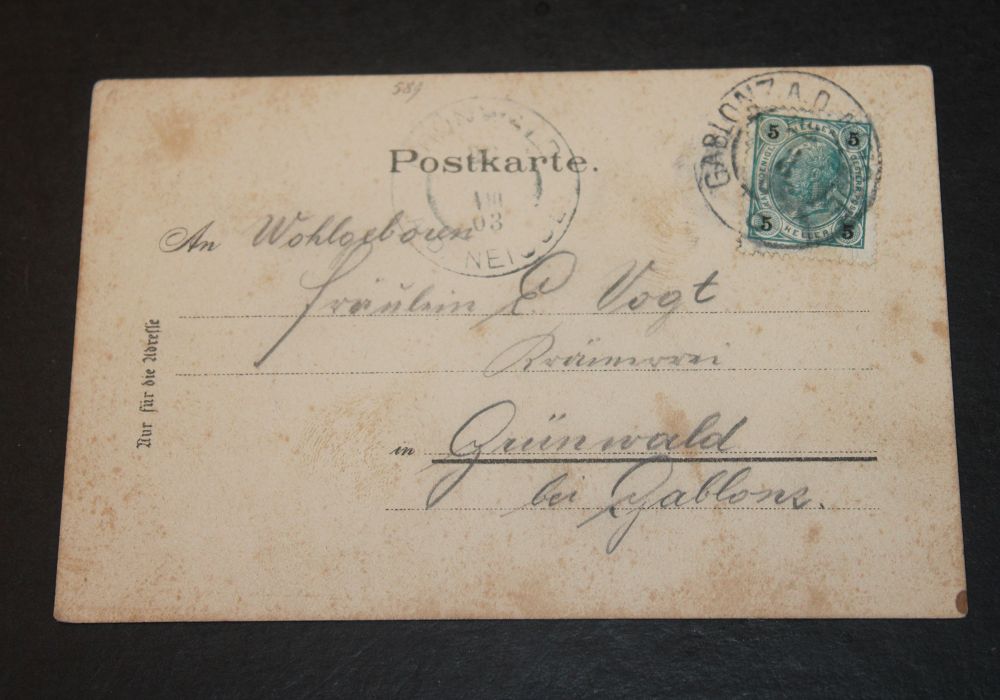 589
Postkarte.
GABLONZ A.D.
5 HELLER 5
5 HELLER 5
03
An Wohlgeboren
Fräulein E Vogt
Krämerei
in Grünwald
bei Gablonz.
Nur für die Adresse